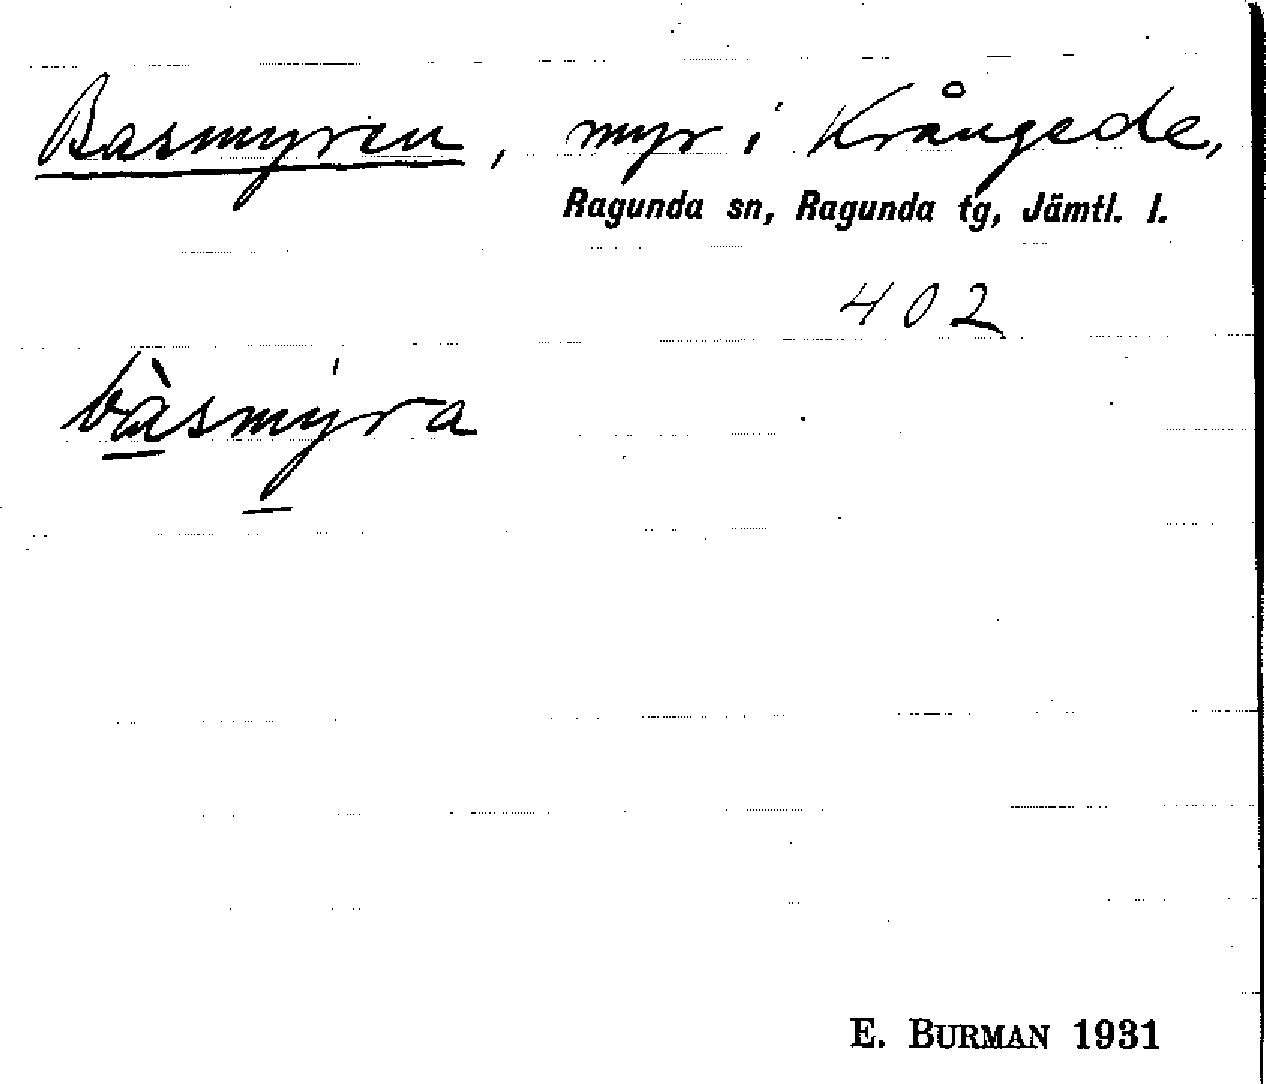 Basmyren, myr i Krångede,
Ragunda sn, Ragunda tg, Jämtl. l.
402
bàsmýra
E. BURMAN 1931